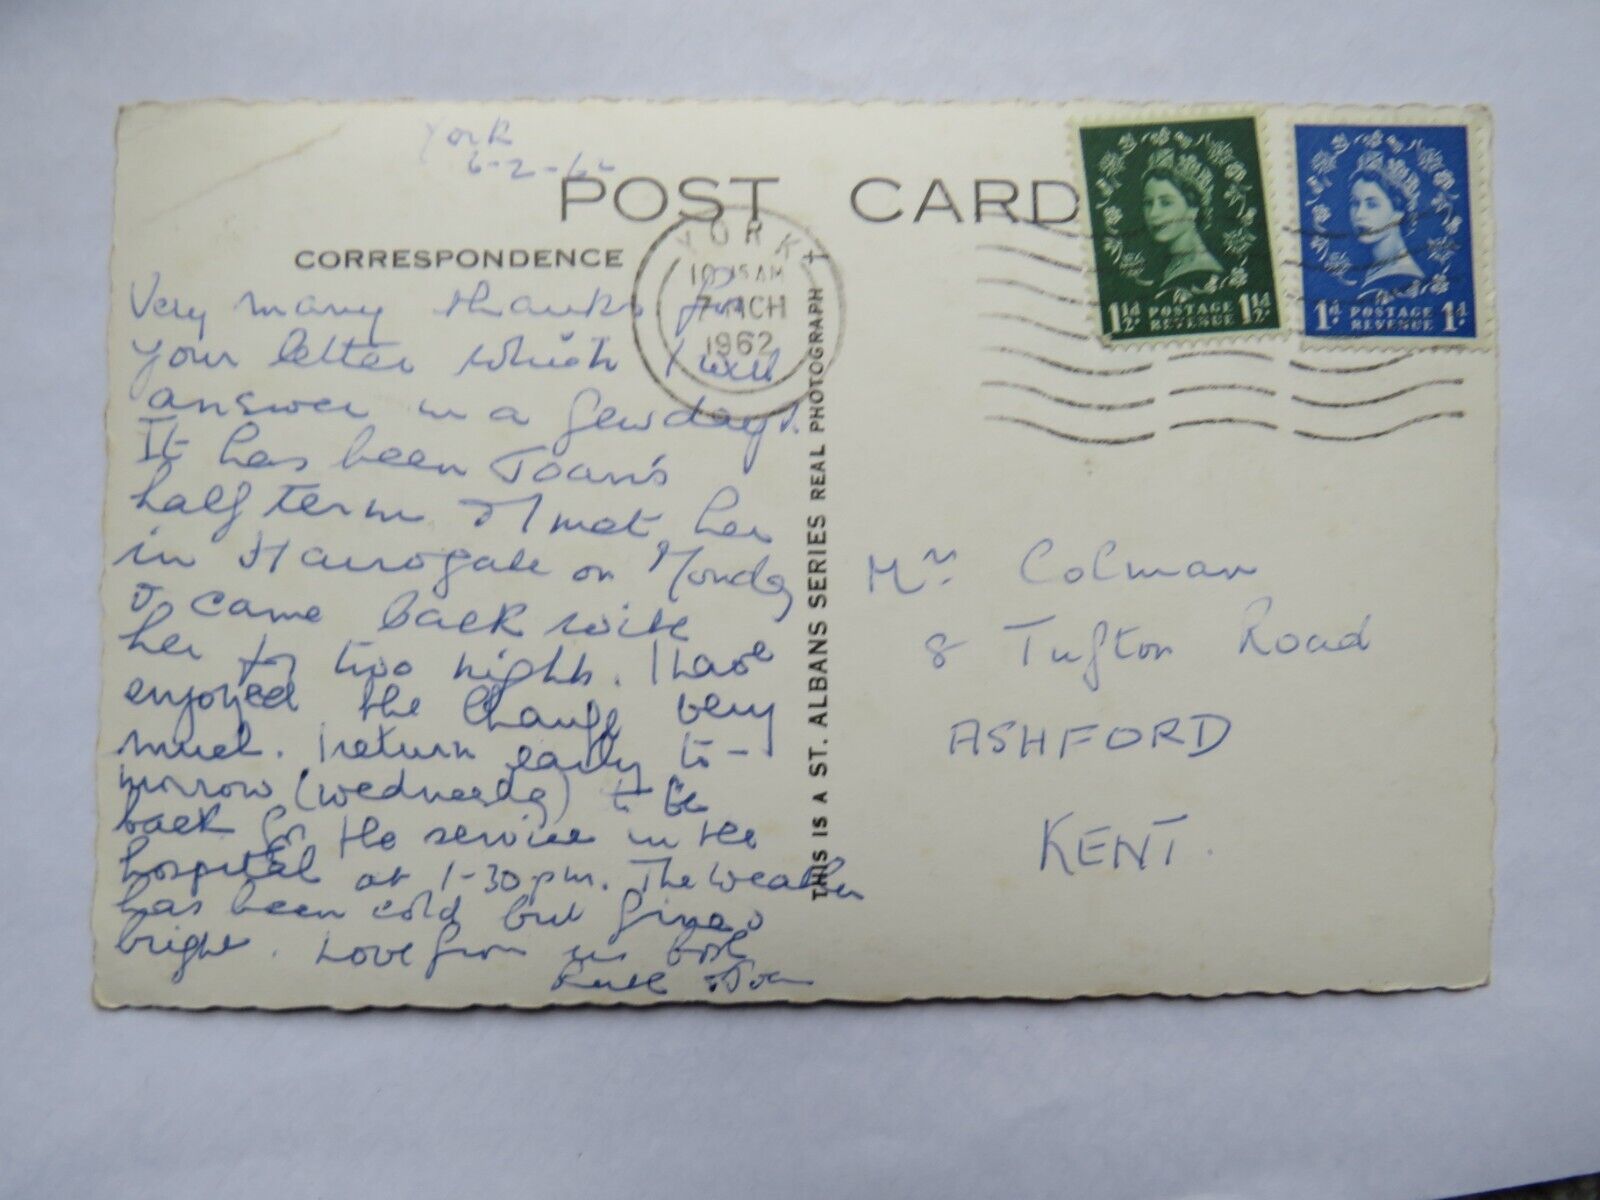 York
6-2-62
POST CARD
CORRESPONDENCE
YORK
10 15 AM
7 MCH
1962
1½d POSTAGE REVENUE 1½d
1d POSTAGE REVENUE 1d
Very many thanks for
your letter which I will
answer in a few days.
It has been Joan's
half term & I met her
in Harrogate on Monday
& came back with
her for two nights. I have
enjoyed the change very
much. I return early to-
morrow (Wednesday) to be
back for the service in the
hospital at 1-30 pm. The weather
has been cold but fine &
bright. Love from us both
Ruth & Joan
THIS IS A ST. ALBANS SERIES REAL PHOTOGRAPH
Mrs. Colman
8 Tufton Road
ASHFORD
KENT.